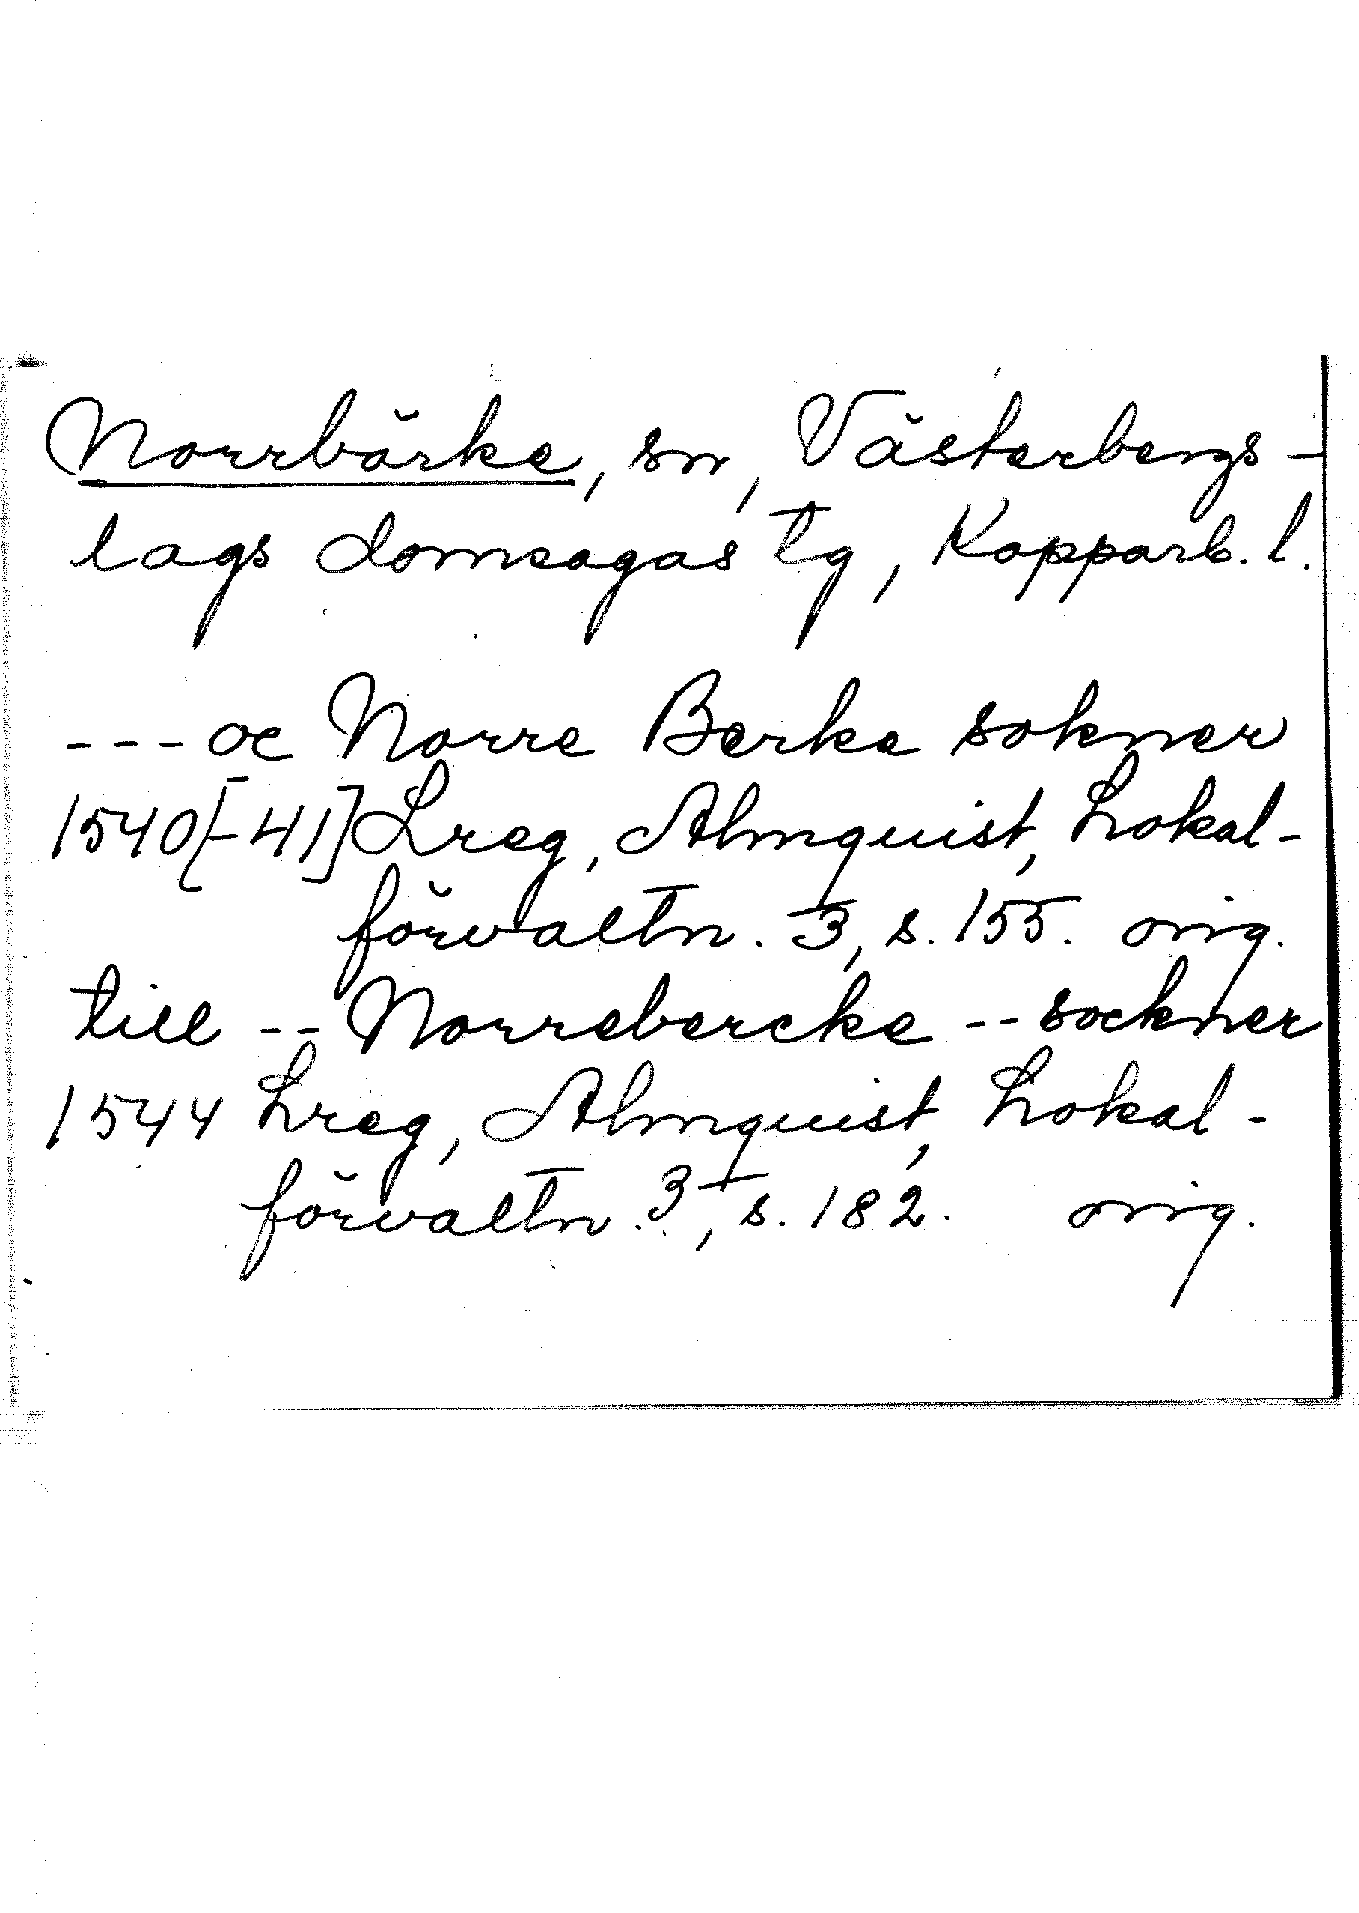 Norrbärke, sn, Västerbergs-
lags domsagas tg, Kopparb. l.
--- oc Norre Berke sokner
1540[-41] Lreg, Almquist, Lokal-
förvaltn. 3, s. 155. orig.
till -- Norrebercke -- sockner
1544 Lreg, Almquist, Lokal-
förvaltn. 3, s. 182. orig.